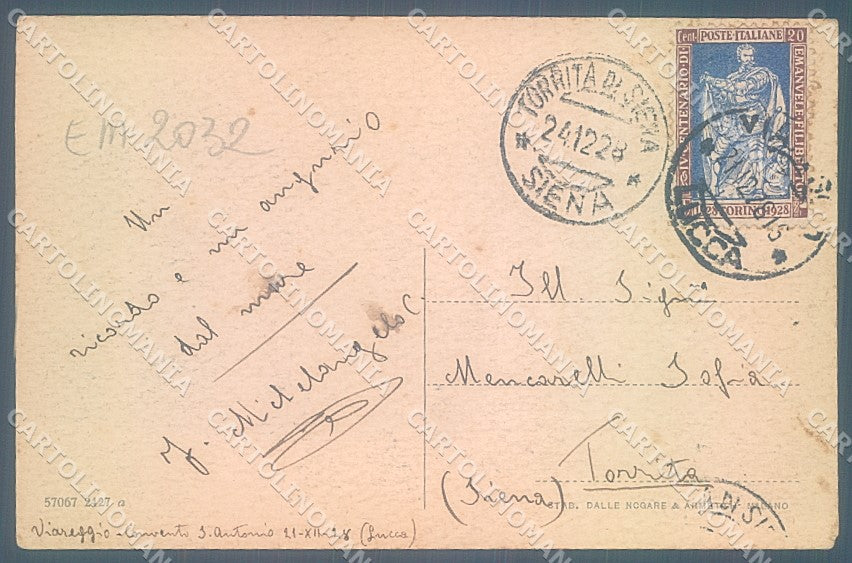 Em 2032
Un
ricordo e un augurio
dal mare
f. Michelangelo C.
Viareggio - Convento S. Antonio 21-XII-28 (Lucca)
57067 2427 a
TORRITA DI SIENA
24.12.28
SIENA
Cent. POSTE ITALIANE 20
IV CENTENARIO DI
EMANVELE FILIBERTO
TORINO 1928
LUCCA
Ill. Sig.
Mencarelli Sofia
Torrita
(Siena)
STAB. DALLE NOGARE & ARMETTI MILANO
CARTOLINOMANIA